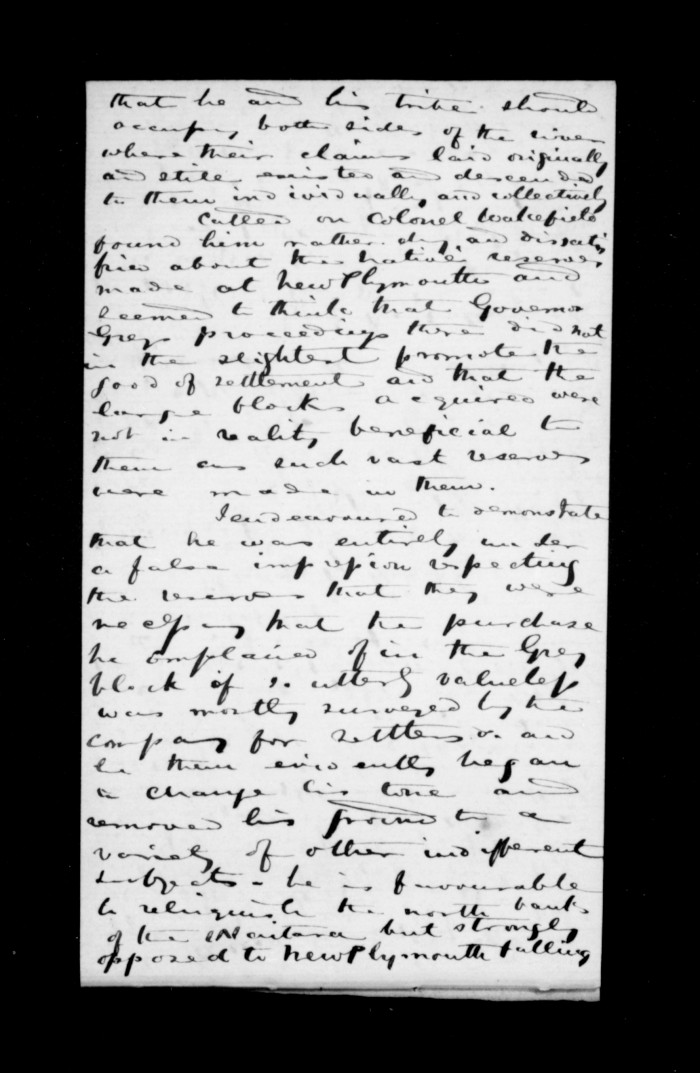 that he and his tribe should
occupy both sides of the river
where their claims laid originally
and still existed and descended
to them individually and collectively
Called on Colonel Wakefield
found him rather dry, and dissatis
fied about the native reserves
made at New Plymouth and
seemed to think that Governor
Greys proceedings there did not
in the slightest promote the
good of settlement and that the
large blocks acquired were
not in reality beneficial to
them as such vast reserves
were made in them.
I endeavoured to demonstrate
that he was entirely under
a false impression respecting
the reserves that they were
necessary that the purchase
he complained of in the Grey
block if so utterly valueless
was mostly surveyed by the
company for settlers and
he then evidently began
to change his tone and
removed his ground to a
variety of other indifferent
subjects - he is favourable
to relinquish the north bank
of the Waitara but strongly
opposed to New Plymouth falling